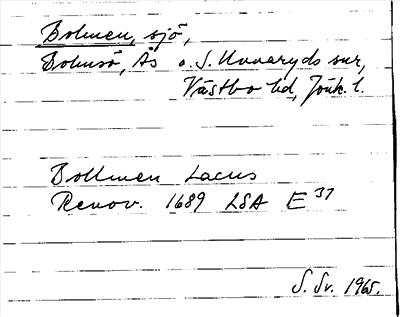 Bolmen, sjö,
Bolmsö, Ås o. S. Unnaryds snr,
Västbo hd, Jönk. l.
Bollmen Lacus
Renov. 1689 LSA E 37
S. Sv. 1965.